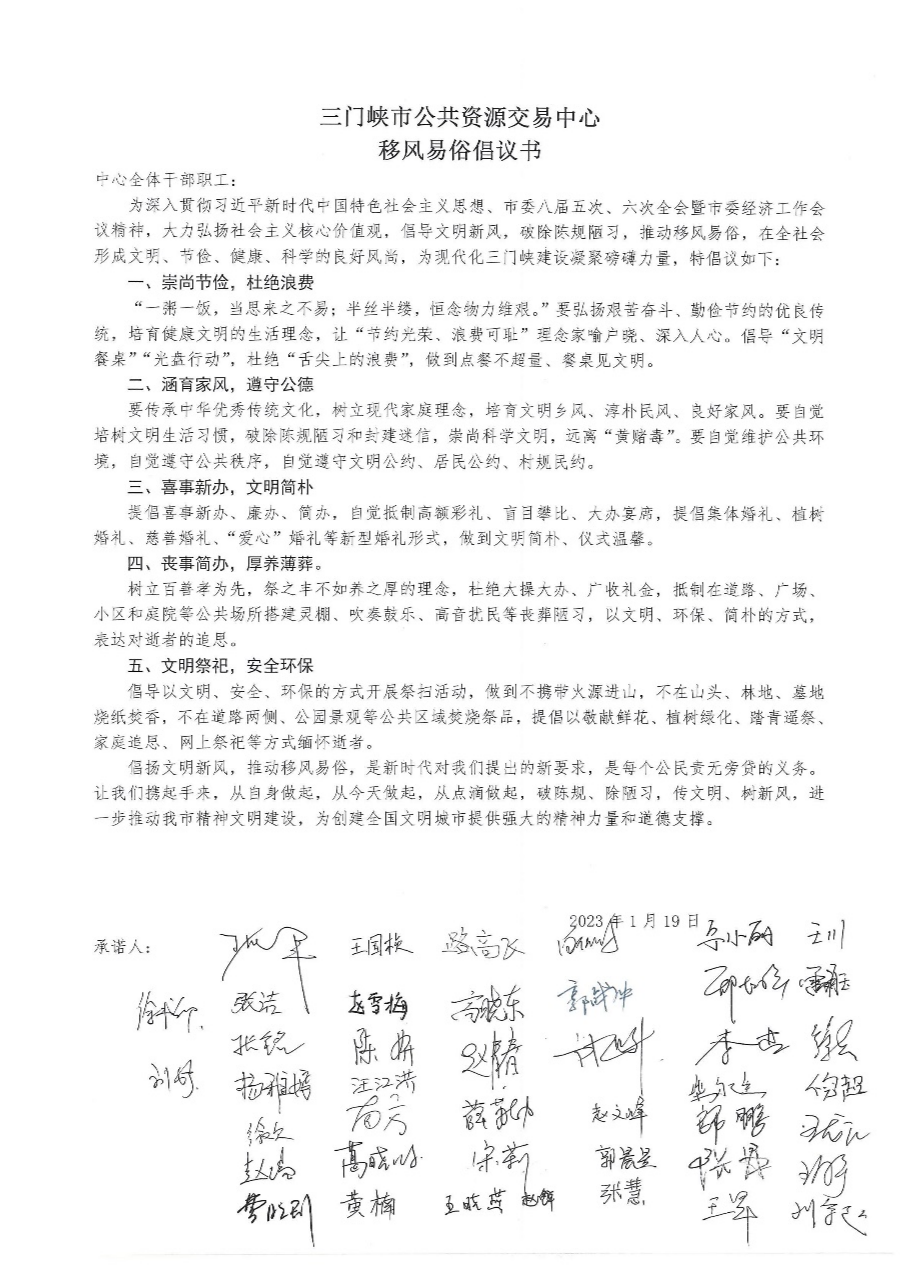 三门峡市公共资源交易中心
移风易俗倡议书
中心全体干部职工：
为深入贯彻习近平新时代中国特色社会主义思想、市委八届五次、六次全会暨市委经济工作会
议精神，大力弘扬社会主义核心价值观，倡导文明新风，破除陈规陋习，推动移风易俗，在全社会
形成文明、节俭、健康、科学的良好风尚，为现代化三门峡建设凝聚磅礴力量，特倡议如下：
一、崇尚节俭，杜绝浪费
“一粥一饭，当思来之不易；半丝半缕，恒念物力维艰。”要弘扬艰苦奋斗、勤俭节约的优良传
统，培育健康文明的生活理念，让“节约光荣、浪费可耻”理念家喻户晓、深入人心。倡导“文明
餐桌”“光盘行动”，杜绝“舌尖上的浪费”，做到点餐不超量、餐桌见文明。
二、涵育家风，遵守公德
要传承中华优秀传统文化，树立现代家庭理念，培育文明乡风、淳朴民风、良好家风。要自觉
培树文明生活习惯，破除陈规陋习和封建迷信，崇尚科学文明，远离“黄赌毒”。要自觉维护公共环
境，自觉遵守公共秩序，自觉遵守文明公约、居民公约、村规民约。
三、喜事新办，文明简朴
提倡喜事新办、廉办、简办，自觉抵制高额彩礼、盲目攀比、大办宴席，提倡集体婚礼、植树
婚礼、慈善婚礼、“爱心”婚礼等新型婚礼形式，做到文明简朴、仪式温馨。
四、丧事简办，厚养薄葬。
树立百善孝为先，祭之丰不如养之厚的理念，杜绝大操大办、广收礼金，抵制在道路、广场、
小区和庭院等公共场所搭建灵棚、吹奏鼓乐、高音扰民等丧葬陋习，以文明、环保、简朴的方式，
表达对逝者的追思。
五、文明祭祀，安全环保
倡导以文明、安全、环保的方式开展祭扫活动，做到不携带火源进山，不在山头、林地、墓地
烧纸焚香，不在道路两侧、公园景观等公共区域焚烧祭品，提倡以敬献鲜花、植树绿化、踏青遥祭、
家庭追思、网上祭祀等方式缅怀逝者。
倡扬文明新风，推动移风易俗，是新时代对我们提出的新要求，是每个公民责无旁贷的义务。
让我们携起手来，从自身做起，从今天做起，从点滴做起，破陈规、除陋习，传文明、树新风，进
一步推动我市精神文明建设，为创建全国文明城市提供强大的精神力量和道德支撑。
2023年1月19日
承诺人： 王国桢 路高飞 王川
张洁 赵雪梅 高晓东
张铭 陈妍 李杰
杨雅婷 汪江洪
南方 赵文峰 郭鹏
宋莉 郭晨星
黄楠 王晓燕 张慧 王军